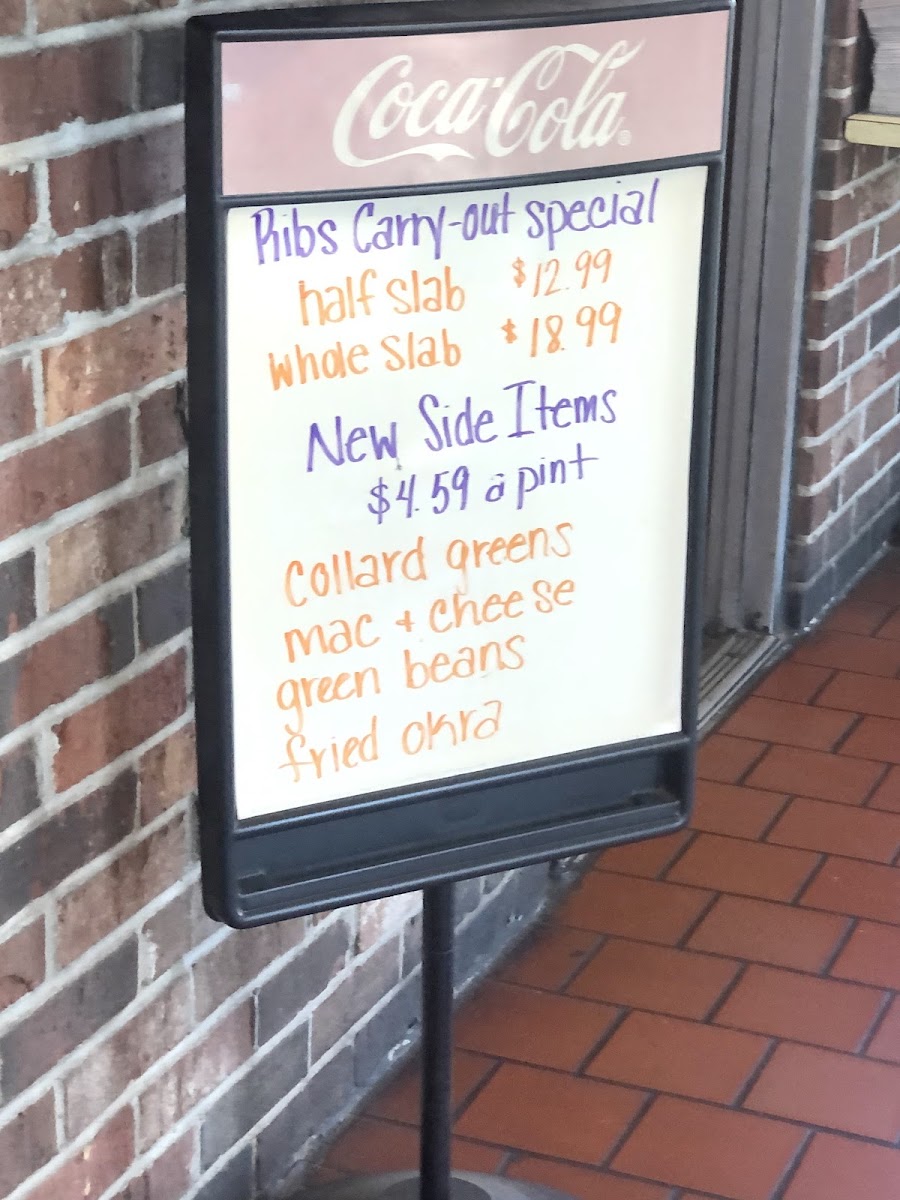 Coca-Cola®
Ribs Carry-out special
half slab $12.99
whole slab $18.99
New Side Items
$4.59 a pint
collard greens
mac + cheese
green beans
fried okra